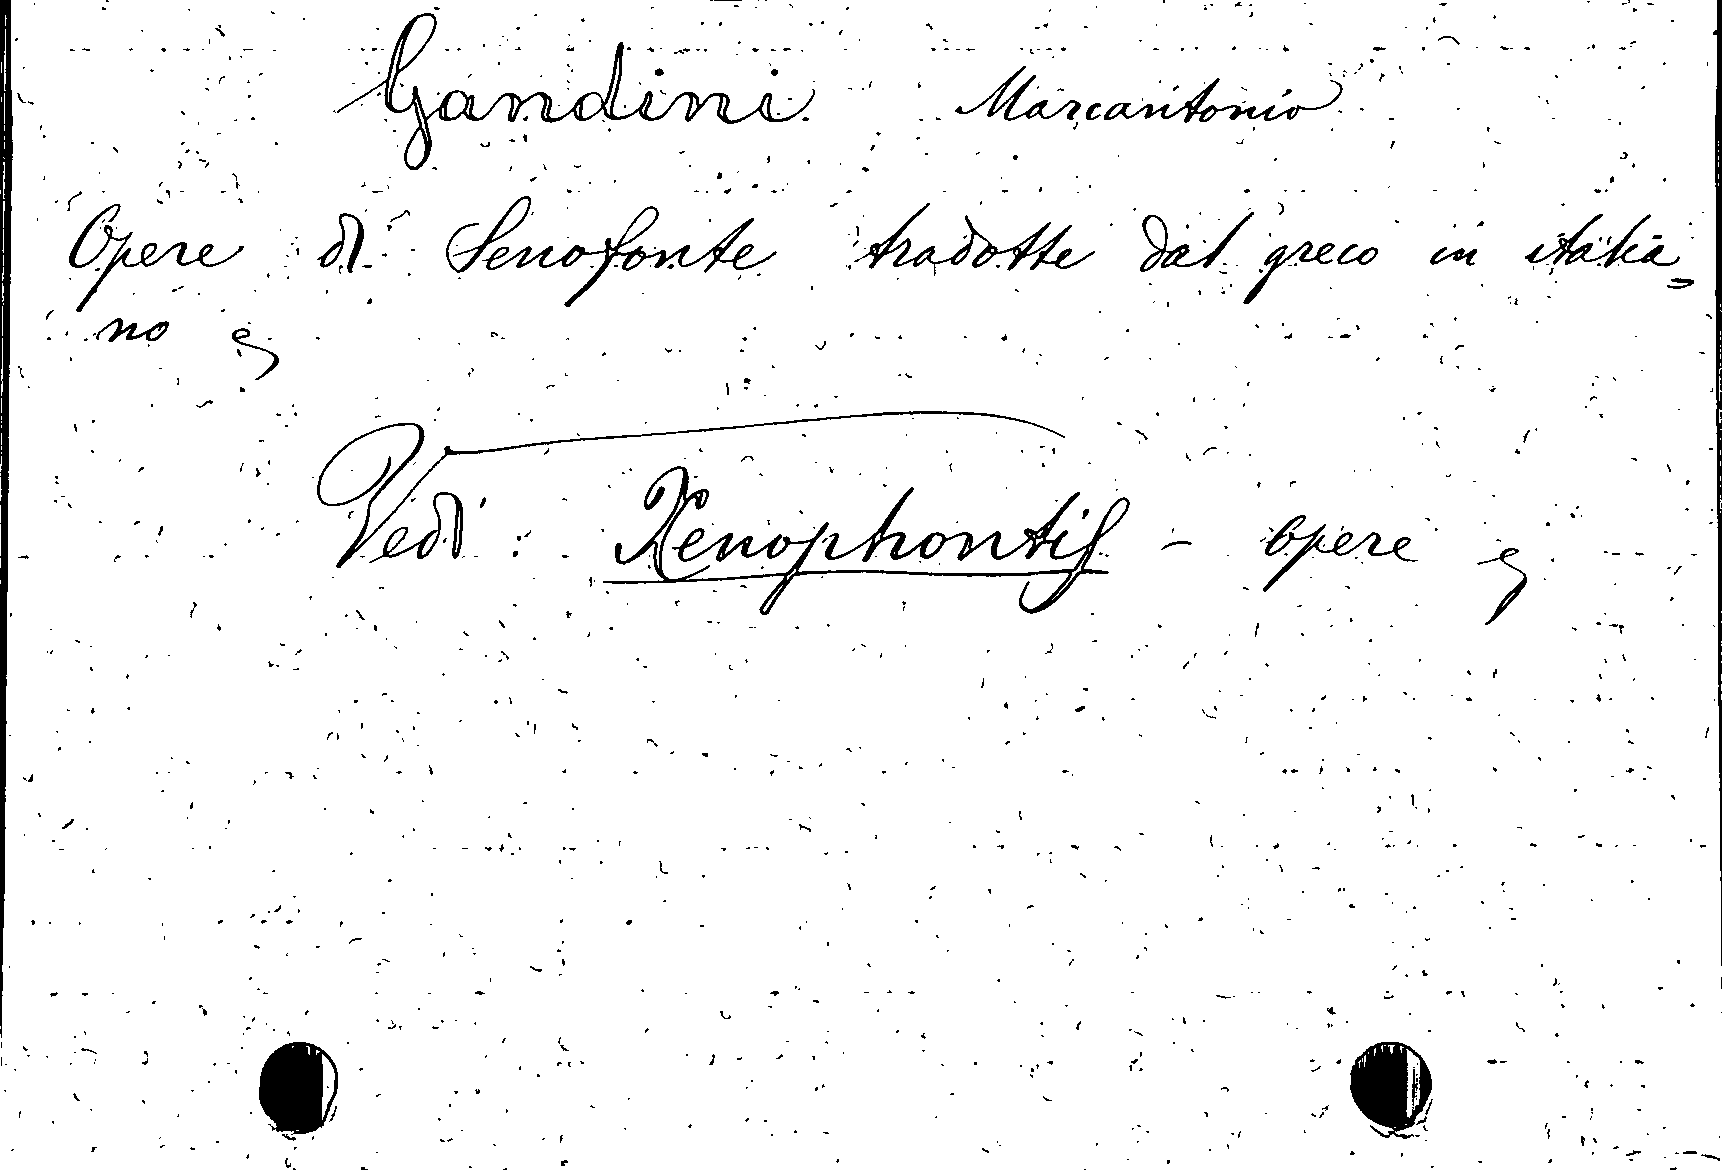 Gandini Marcantonio
Opere di Senofonte tradotte dal greco in italia=
no
Vedi: Xenophontis - opere